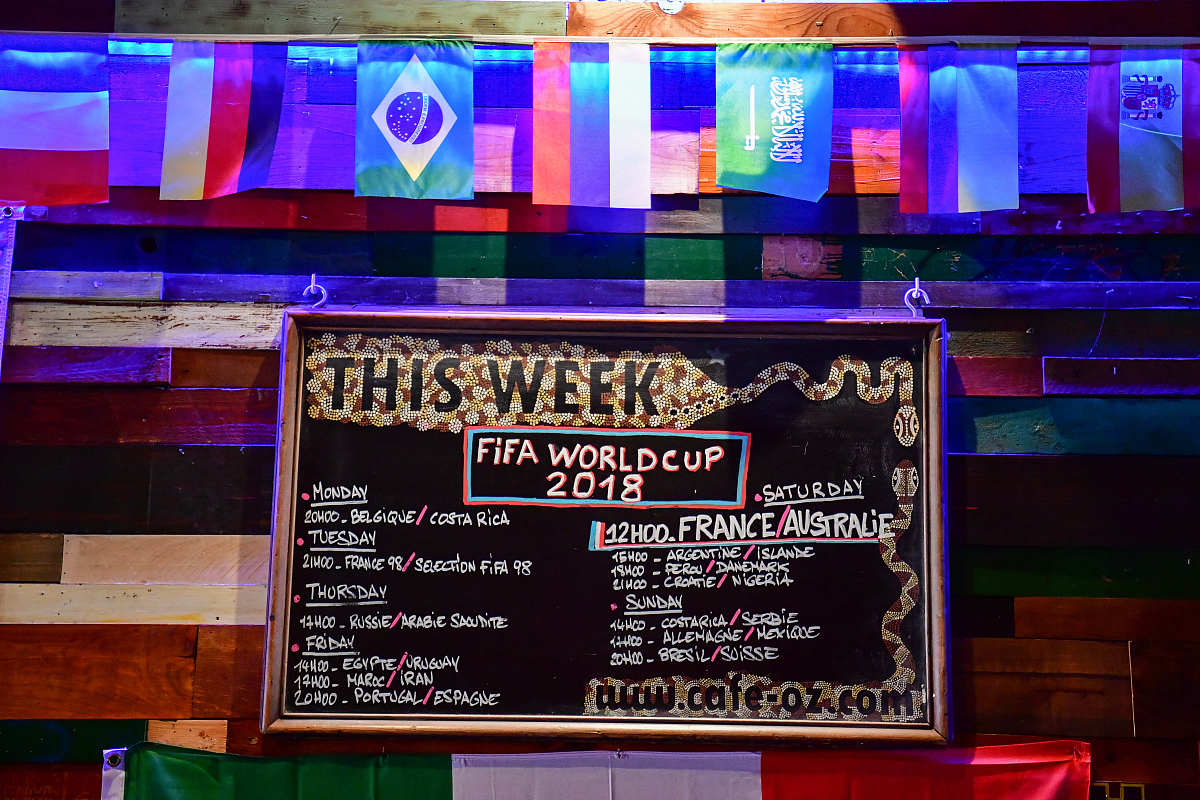 THIS WEEK
FIFA WORLD CUP
2018
MONDAY
20H00 - BELGIQUE/COSTA RICA
TUESDAY
21H00 - FRANCE 98/SELECTION FIFA 98
THURSDAY
17H00 - RUSSIE/ARABIE SAOUDITE
FRIDAY
14H00 - EGYPTE/URUGUAY
17H00 - MAROC/IRAN
20H00 - PORTUGAL/ESPAGNE
SATURDAY
12H00 - FRANCE/AUSTRALIE
15H00 - ARGENTINE/ISLANDE
18H00 - PEROU/DANEMARK
21H00 - CROATIE/NIGERIA
SUNDAY
14H00 - COSTARICA/SERBIE
17H00 - ALLEMAGNE/MEXIQUE
20H00 - BRESIL/SUISSE
www.cafe-oz.com